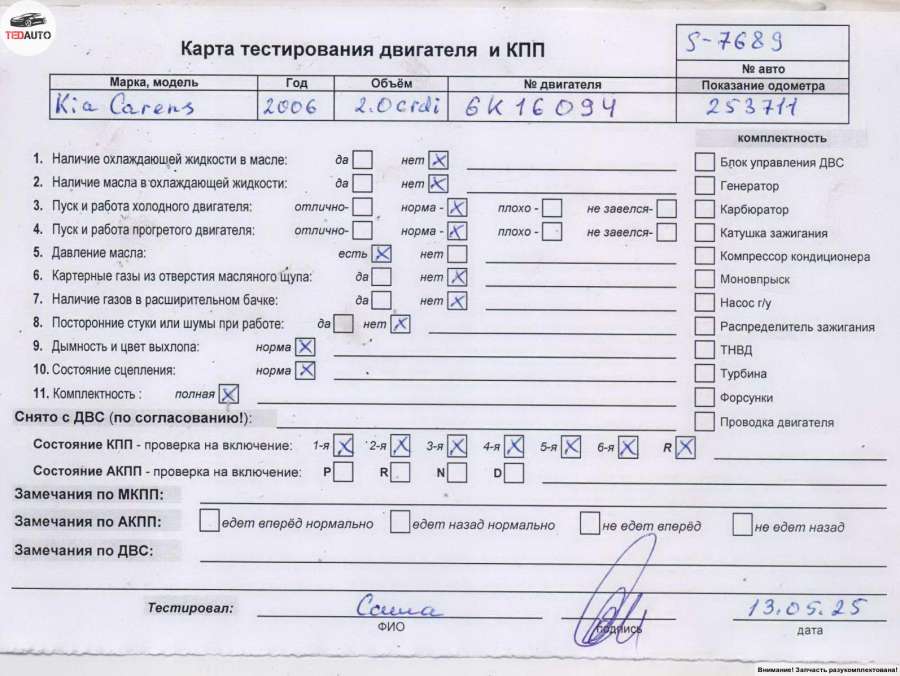 TEDAUTO
Карта тестирования двигателя и КПП
5-7689
№ авто
Марка, модель Год Объём № двигателя Показание одометра
Kia Carens 2006 2.0crdi 6K16094 253711
комплектность
1. Наличие охлаждающей жидкости в масле: да нет X
Блок управления ДВС
2. Наличие масла в охлаждающей жидкости: да нет X
Генератор
3. Пуск и работа холодного двигателя: отлично- норма - X плохо - не завелся-
Карбюратор
4. Пуск и работа прогретого двигателя: отлично- норма - X плохо - не завелся-
Катушка зажигания
5. Давление масла: есть X нет
Компрессор кондиционера
6. Картерные газы из отверстия масляного щупа: да нет X
Моновпрыск
7. Наличие газов в расширительном бачке: да нет X
Насос г/у
8. Посторонние стуки или шумы при работе: да нет X
Распределитель зажигания
9. Дымность и цвет выхлопа: норма X
ТНВД
10. Состояние сцепления: норма X
Турбина
11. Комплектность : полная X
Форсунки
Снято с ДВС (по согласованию!):
Проводка двигателя
Состояние КПП - проверка на включение: 1-я X 2-я X 3-я X 4-я X 5-я X 6-я X R X
Состояние АКПП - проверка на включение: P R N D
Замечания по МКПП:
Замечания по АКПП: едет вперёд нормально едет назад нормально не едет вперёд не едет назад
Замечания по ДВС:
Тестировал: Саша 13.05.25
ФИО подпись дата
Внимание! Запчасть разукомплектована!